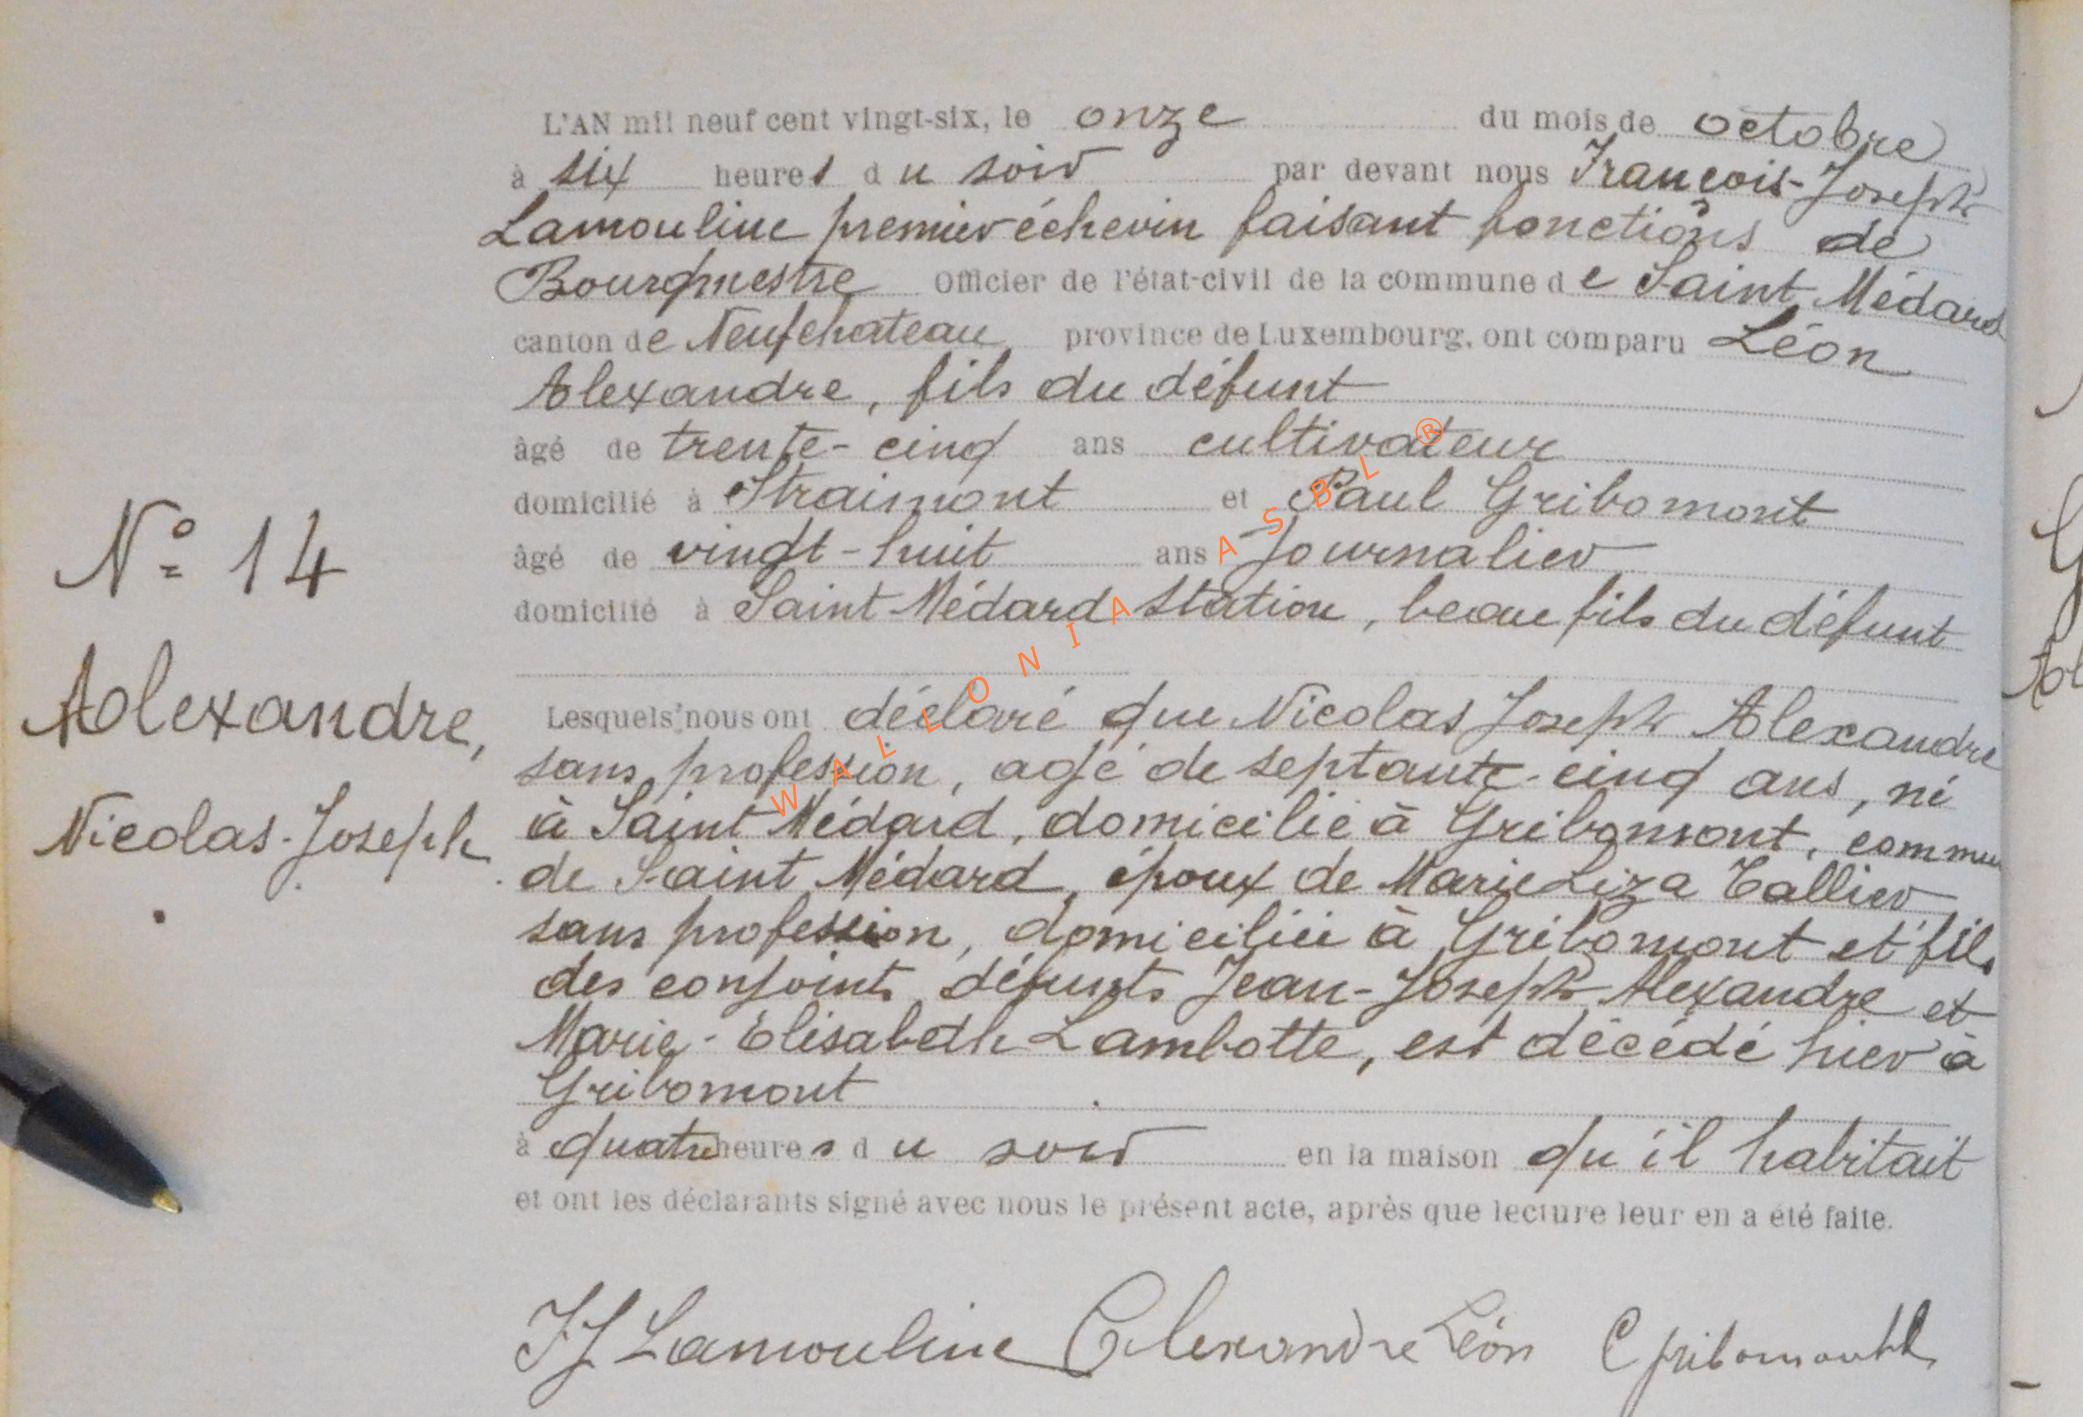 L'AN mil neuf cent vingt-six, le onze du mois de octobre
à six heures du soir par devant nous François-Joseph
Lamouline premier échevin faisant fonctions de
Bourgmestre Officier de l'état-civil de la commune de Saint Médard
canton de Neufchateau province de Luxembourg, ont comparu Léon
Alexandre, fils du défunt
âgé de trente-cinq ans cultivateur
domicilié à Straimont et Paul Gribomont
âgé de vingt-huit ans Journalier
domicilié à Saint-Médard station, beau fils du défunt
N° 14
Alexandre,
Nicolas-Joseph
Lesquels nous ont déclaré que Nicolas Joseph Alexandre
sans profession, agé de septante-cinq ans, né
à Saint Médard, domicilié à Gribomont, commu
de Saint Médard, époux de Marie Liza Tallier
sans profession, domiciliée à Gribomont et fils
des conjoints défunts Jean-Joseph Alexandre et
Marie-Elisabeth Lambotte, est décédé hier à
Gribomont
à quatre heures du soir en la maison qu'il habitait
et ont les déclarants signé avec nous le présent acte, après que lecture leur en a été faite.
FJ Lamouline Alexandre Léon P Gribomont
WALLONIA ASBL ®